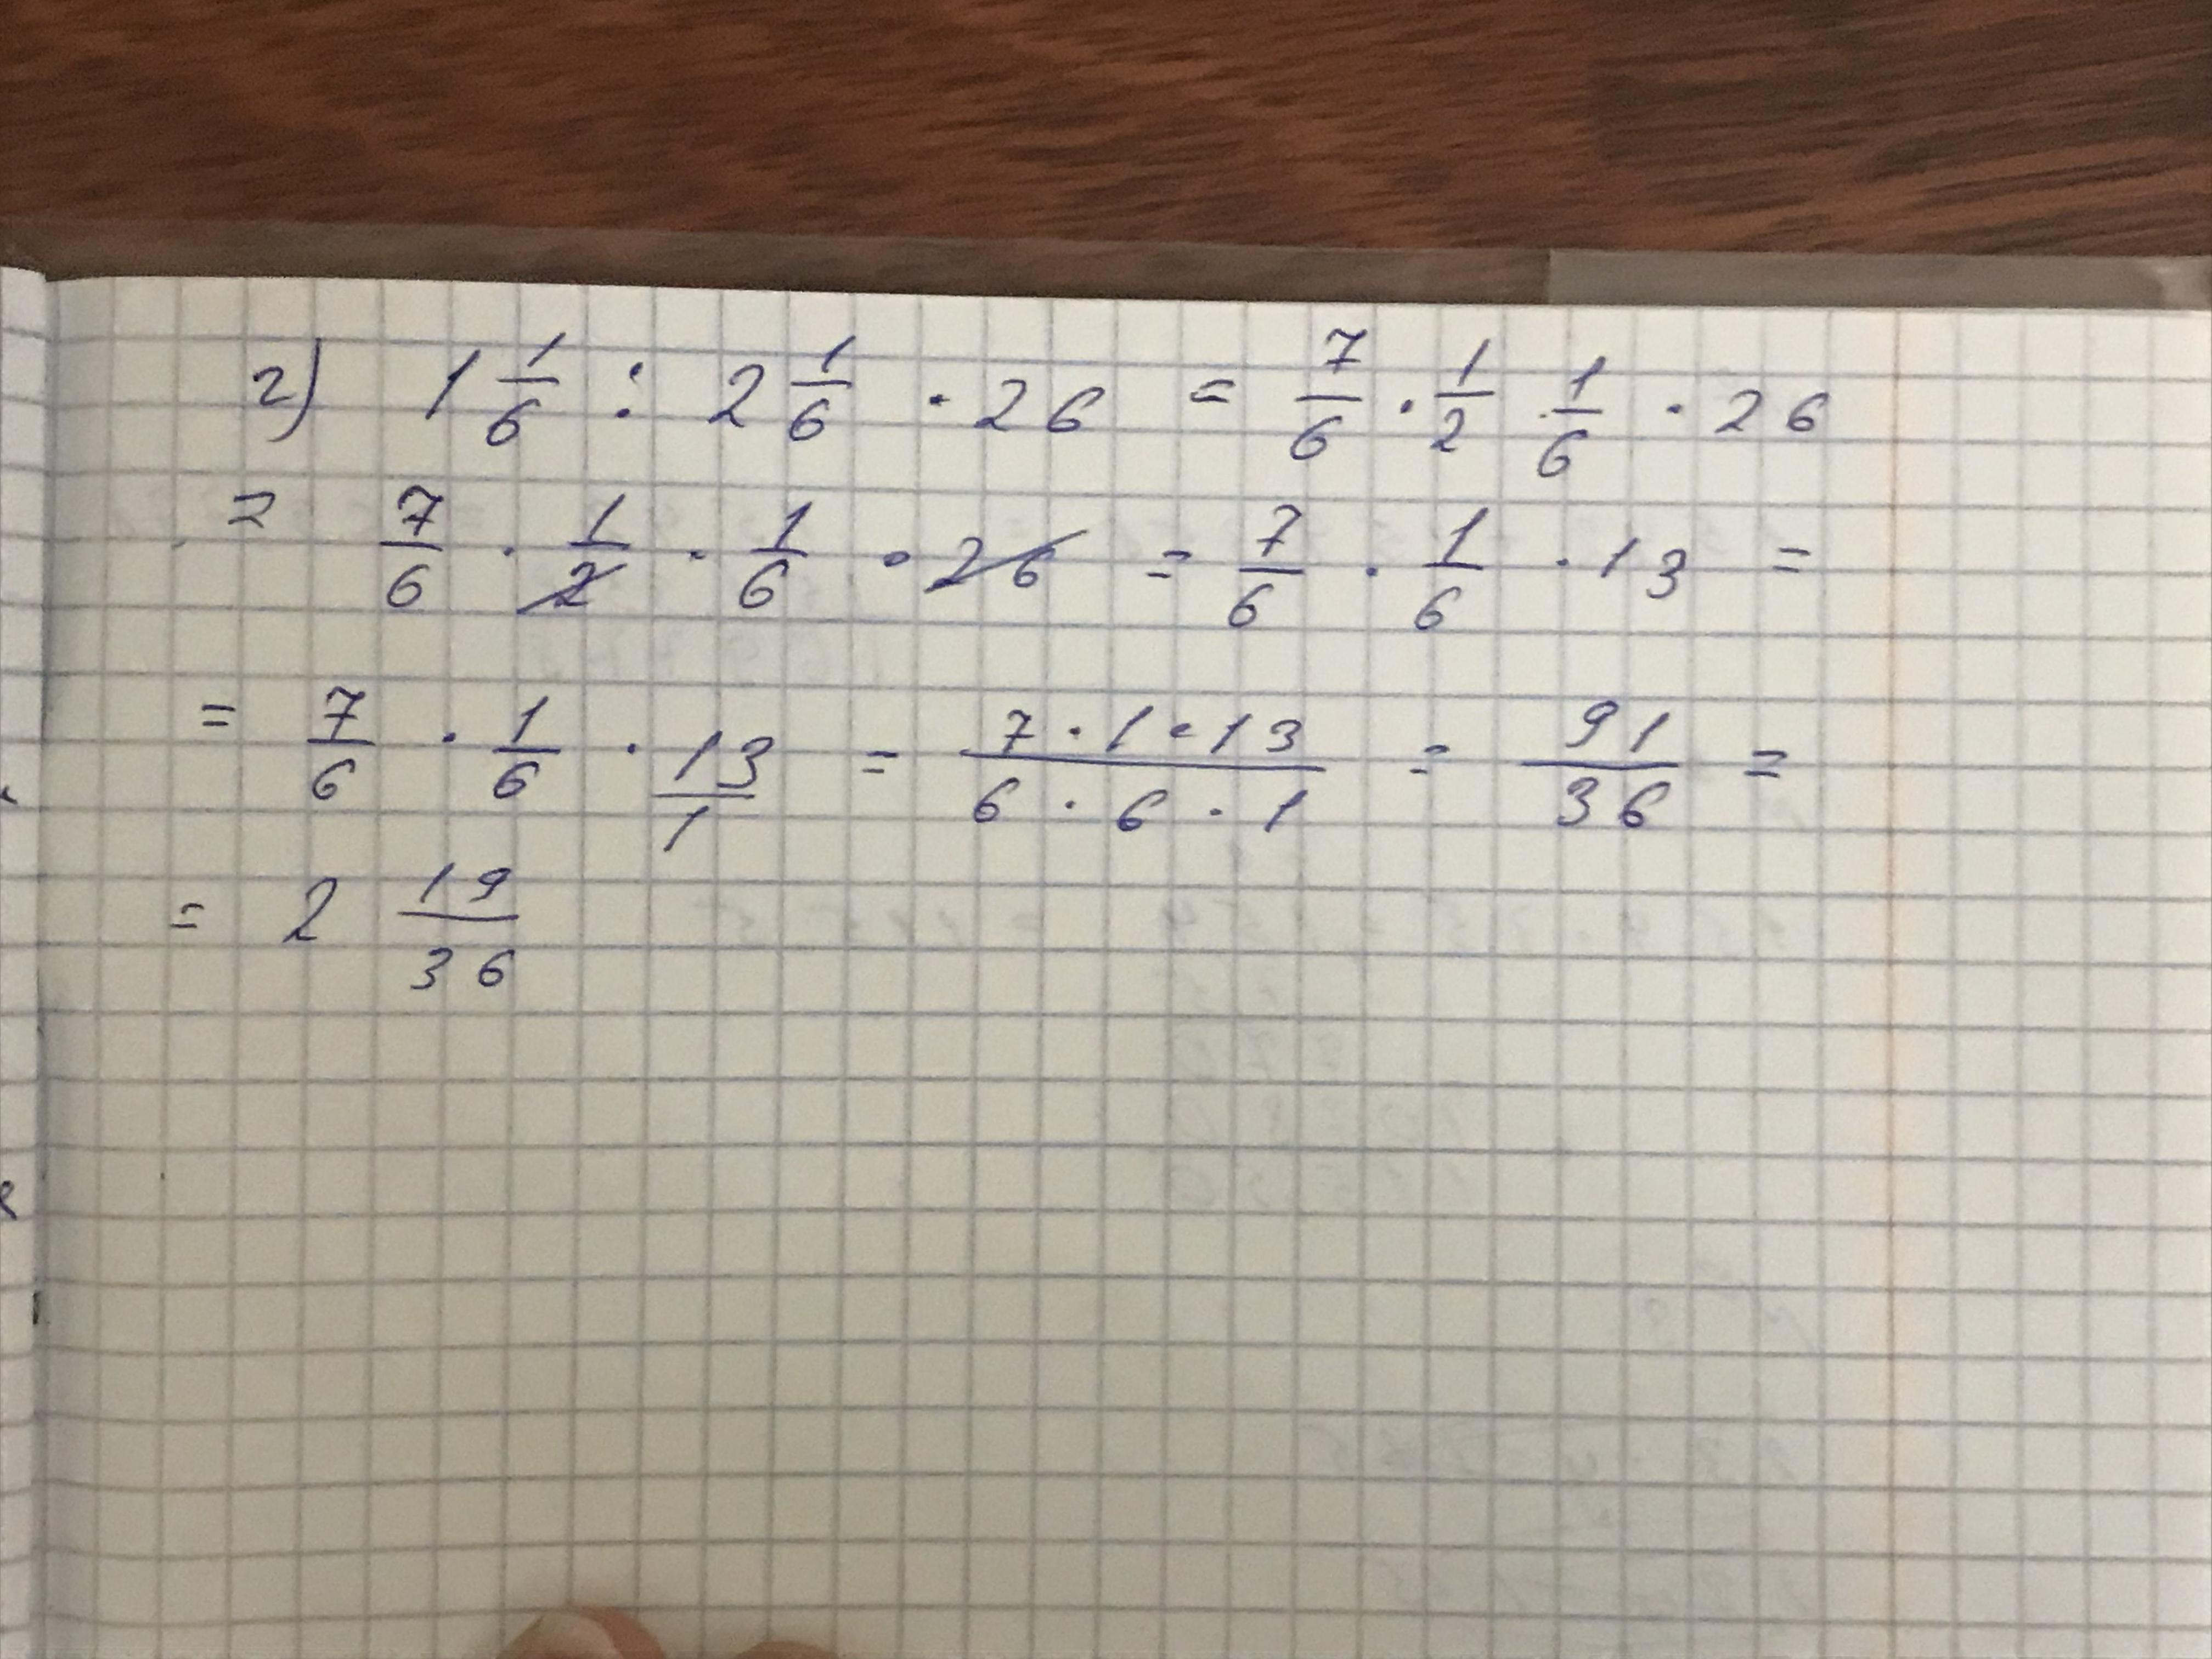 г) 1 1/6 : 2 1/6 · 26 = 7/6 · 1/2 1/6 · 26
= 7/6 · 1/2 · 1/6 · 26 = 7/6 · 1/6 · 13 =
= 7/6 · 1/6 · 13/1 = 7·1·13/6·6·1 = 91/36 =
= 2 19/36